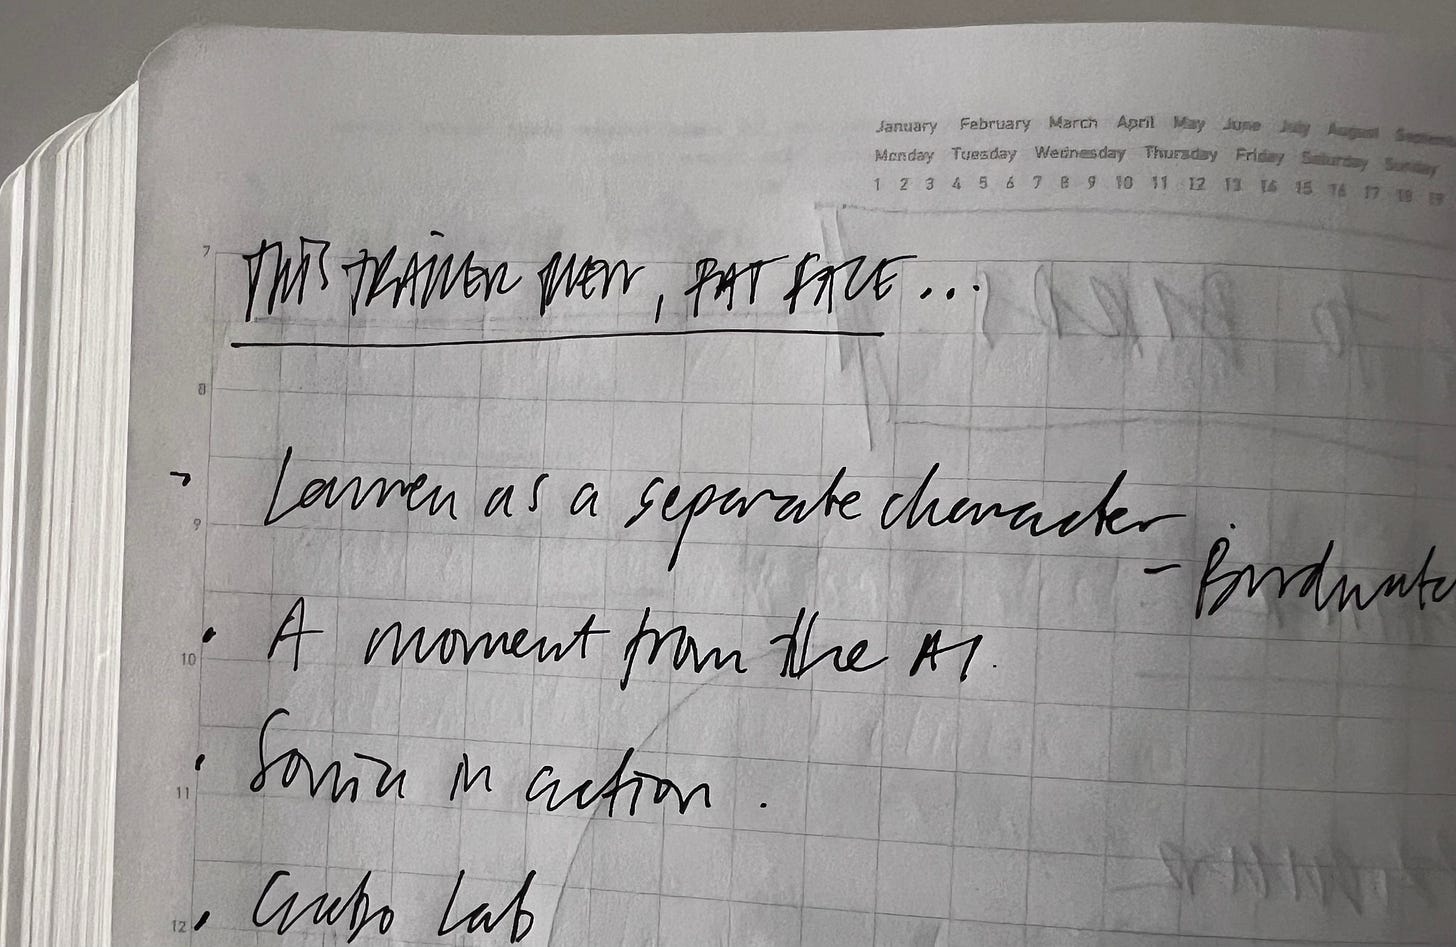 January February March April May June July August
Monday Tuesday Wednesday Thursday Friday Saturday Sunday
1 2 3 4 5 6 7 8 9 10 11 12 13 14 15 16 17 18 19
7
THIS TRAILER THEN, FAT FACE...
8
Lauren as a separate character
9
- Birdwatc
• A moment from the AI.
10
• Sonia in action.
11
• Lab
12